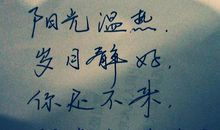 阳光温热.
岁月静好.
你还不来.